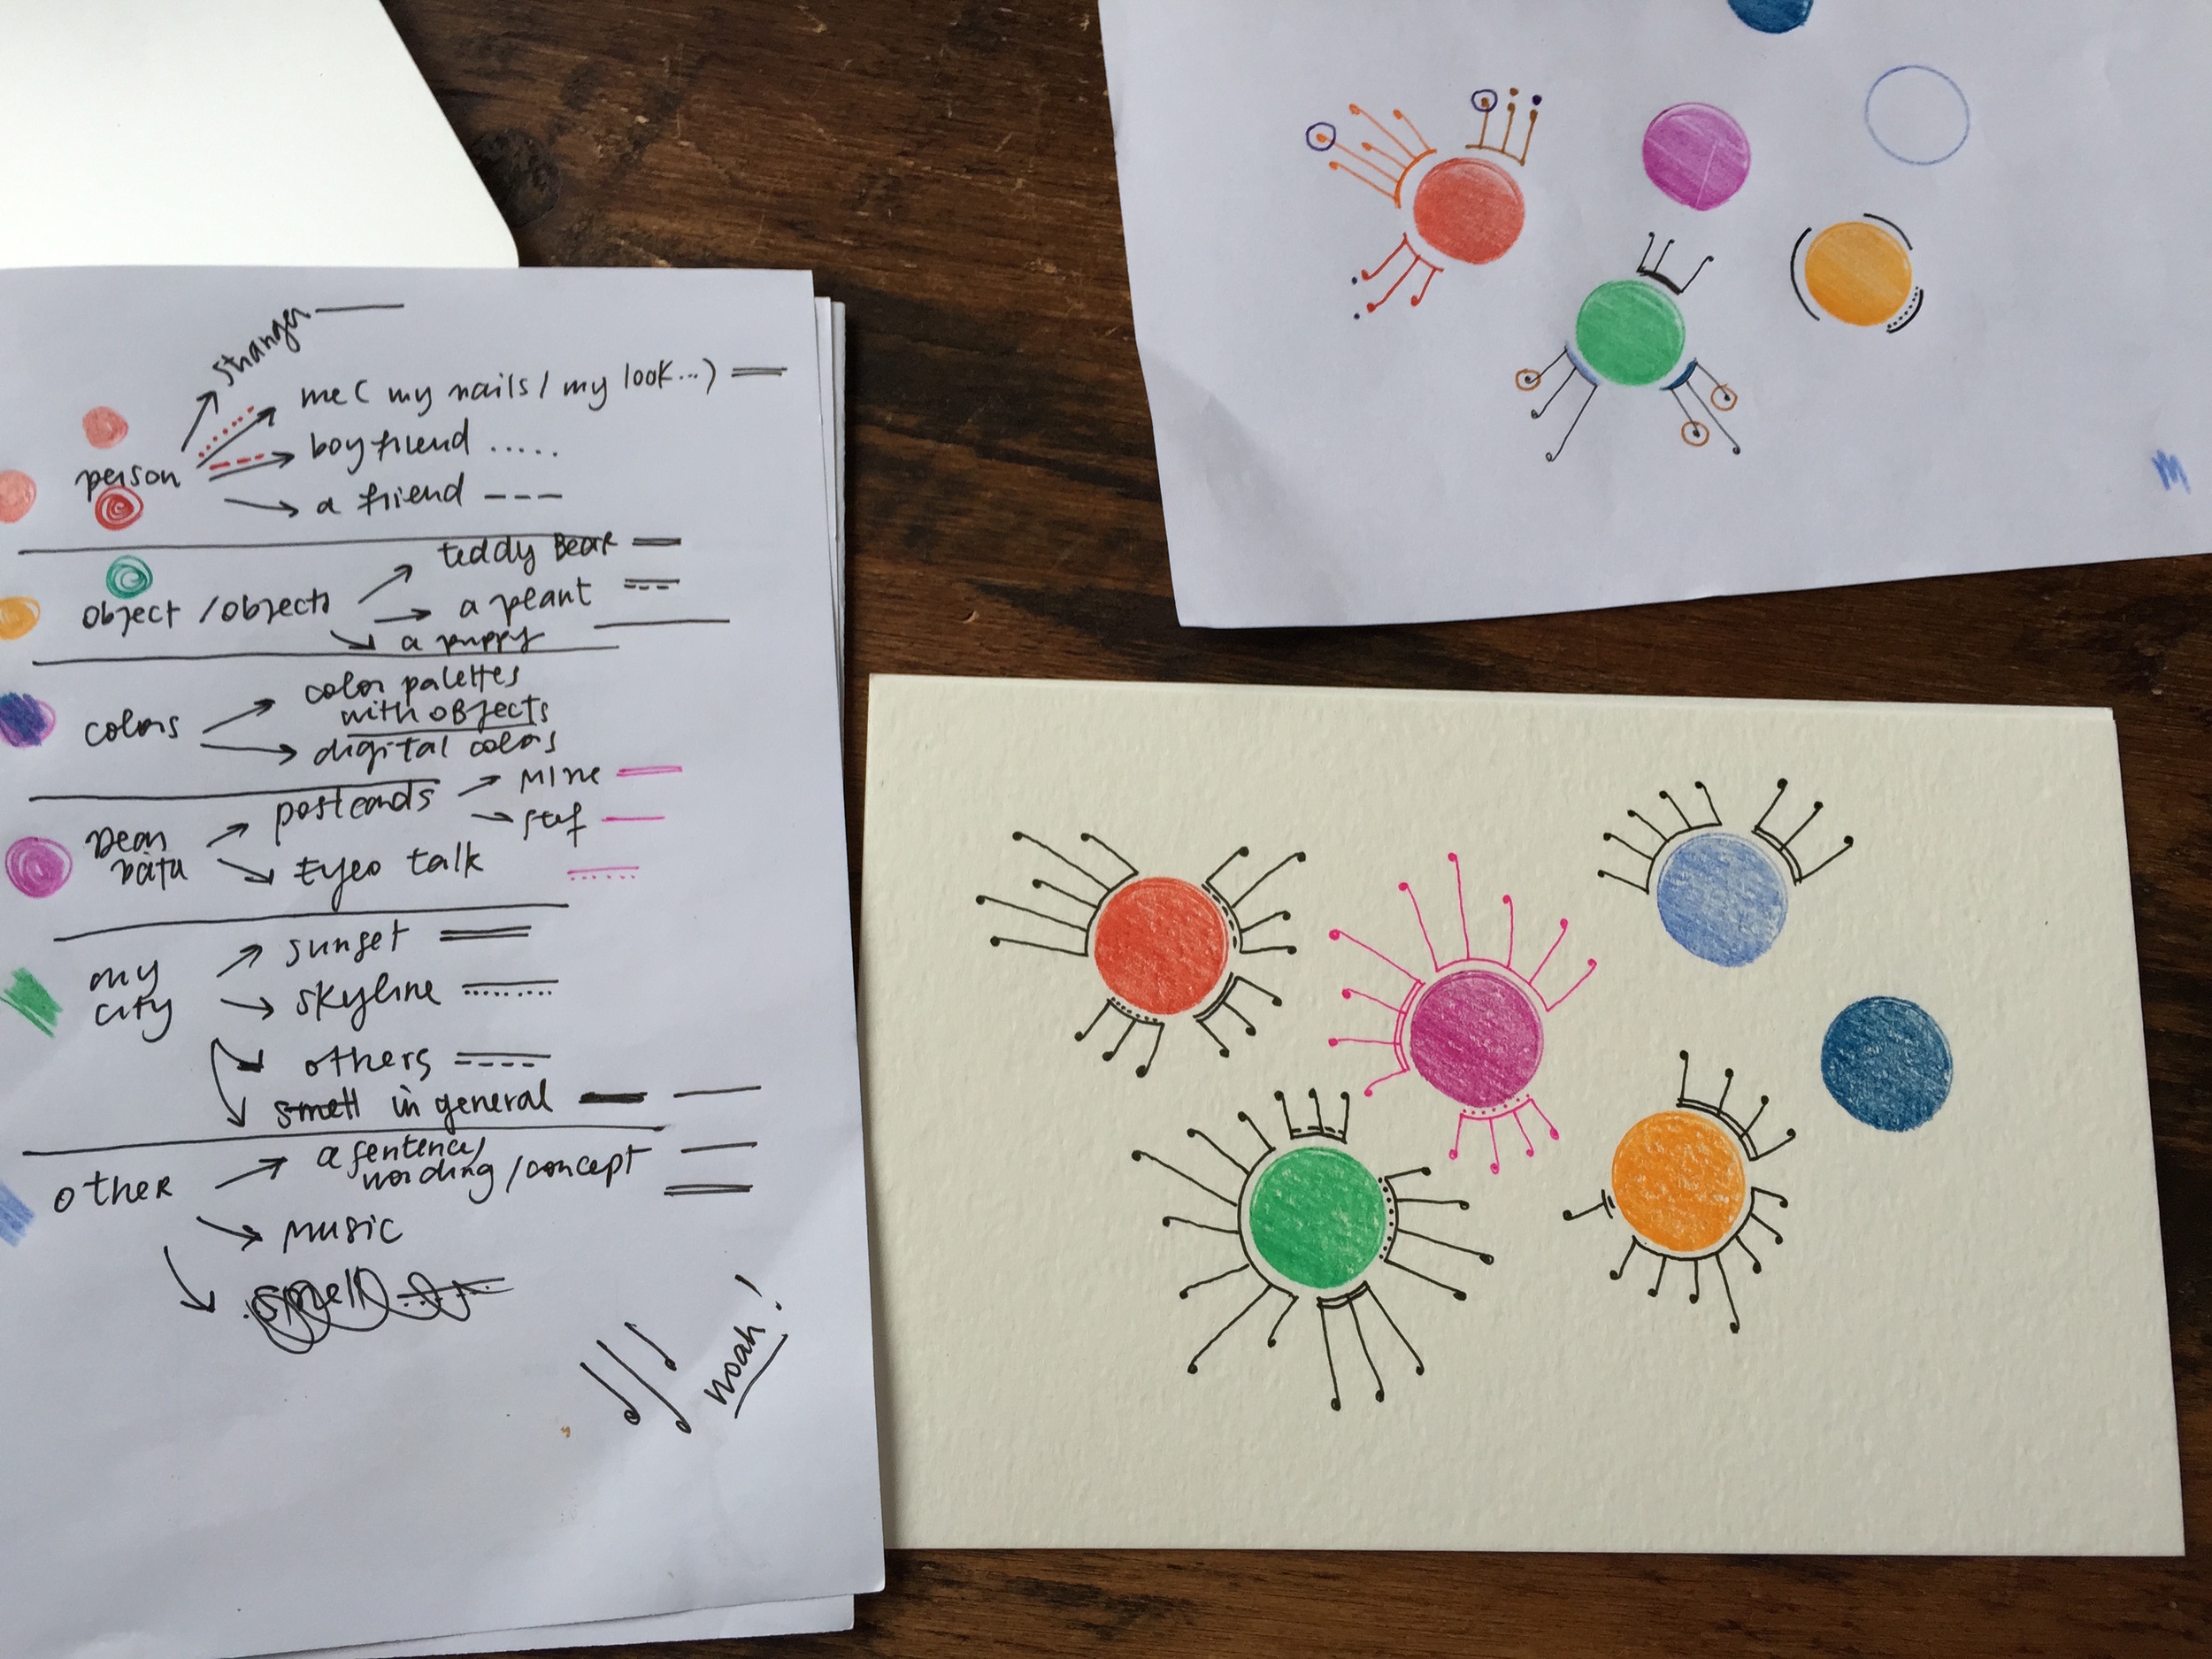 stranger
me ( my nails / my look...)
person
boyfriend
a friend
teddy Bear
object / objects
a peant
a puppy
color palettes
with objects
colors
digital colors
postcards
mine
stef
Dear
Data
Eyeo talk
sunset
my
city
skyline
others
smell in general
a sentence/
wording / concept
other
music
smell
noah!
M